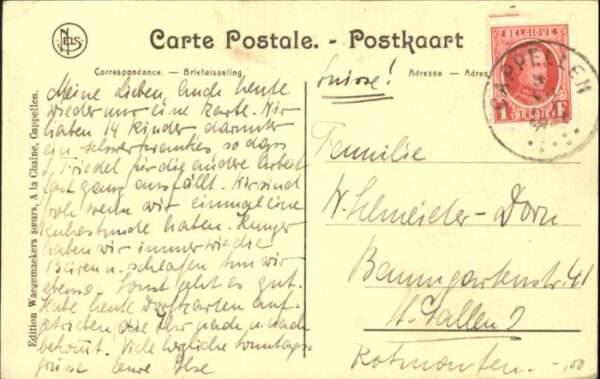 NELS
Carte Postale. - Postkaart
Correspondance. — Briefwisseling
Adresse. — Adres
Edition Waegemaekers sœurs, A la Chaine, Cappellen.
BELGIQUE
1 F
BELGIË
CAPPELLEN
Suisse!
Meine Lieben, auch heute
wieder nur eine Karte. Wir
haben 14 Kinder, darunter
ein schwerkrankes, so dass
Friedel für die andere Arbeit
fast ganz ausfällt. Wir sind
froh wenn wir einmal eine
Ruhestunde haben. Hunger
haben wir immer wie die
Bären u. schlafen tun wir
ebenso. Sonst geht es gut.
Habe heute Dorfkarten auf-
getrieben die Ihr nach u. nach
bekommt. Viele herzliche Sonntags-
grüsse Eure Ilse
Familie
W. Schneider-Dorn
Baumgartenstr. 41
St. Gallen
Rotmonten.